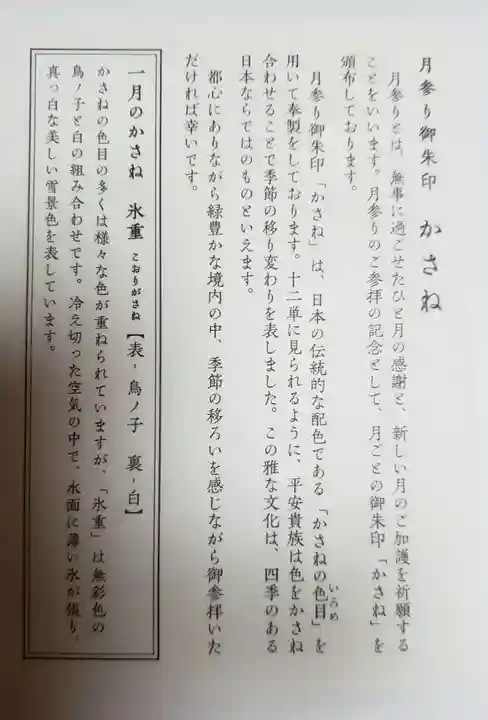 月参り御朱印 かさね
月参りとは、無事に過ごせたひと月の感謝と、新しい月のご加護を祈願する
ことをいいます。月参りのご参拝の記念として、月ごとの御朱印「かさね」を
頒布しております。
月参り御朱印「かさね」は、日本の伝統的な配色である「かさねの色目」を
いろめ
用いて奉製をしております。十二単に見られるように、平安貴族は色をかさね
合わせることで季節の移り変わりを表しました。この雅な文化は、四季のある
日本ならではのものといえます。
都心にありながら緑豊かな境内の中、季節の移ろいを感じながら御参拝いた
だければ幸いです。
一月のかさね 氷重 こおりがさね 【表-鳥ノ子 裏-白】
かさねの色目の多くは様々な色が重ねられていますが、「氷重」は無彩色の
鳥ノ子と白の組み合わせです。冷え切った空気の中で、水面に薄い氷が張り、
真っ白な美しい雪景色を表しています。